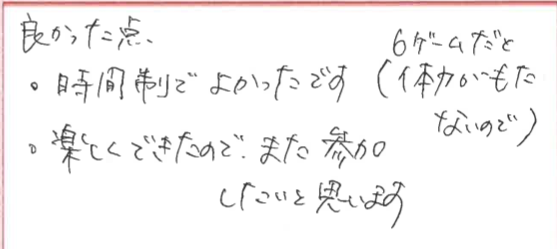 良かった点、
。時間制でよかったです
(6ゲームだと
体力がもた
ないので)
。楽しくできたので、また参加
したいと思います